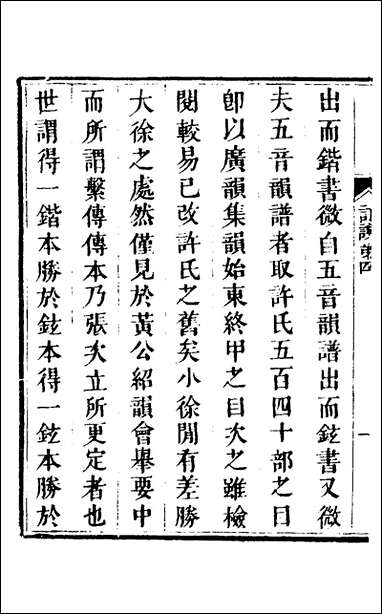 出而鍇書微自五音韻譜出而鉉書又微
夫五音韻譜者取許氏五百四十部之目
卽以廣韻集韻始東終甲之目次之雖檢
閱較易已改許氏之舊矣小徐閒有差勝
大徐之處然僅見於黃公紹韻會舉要中
而所謂繫傳傳本乃張次立所更定者也
世謂得一鍇本勝於鉉本得一鉉本勝於
第四
一